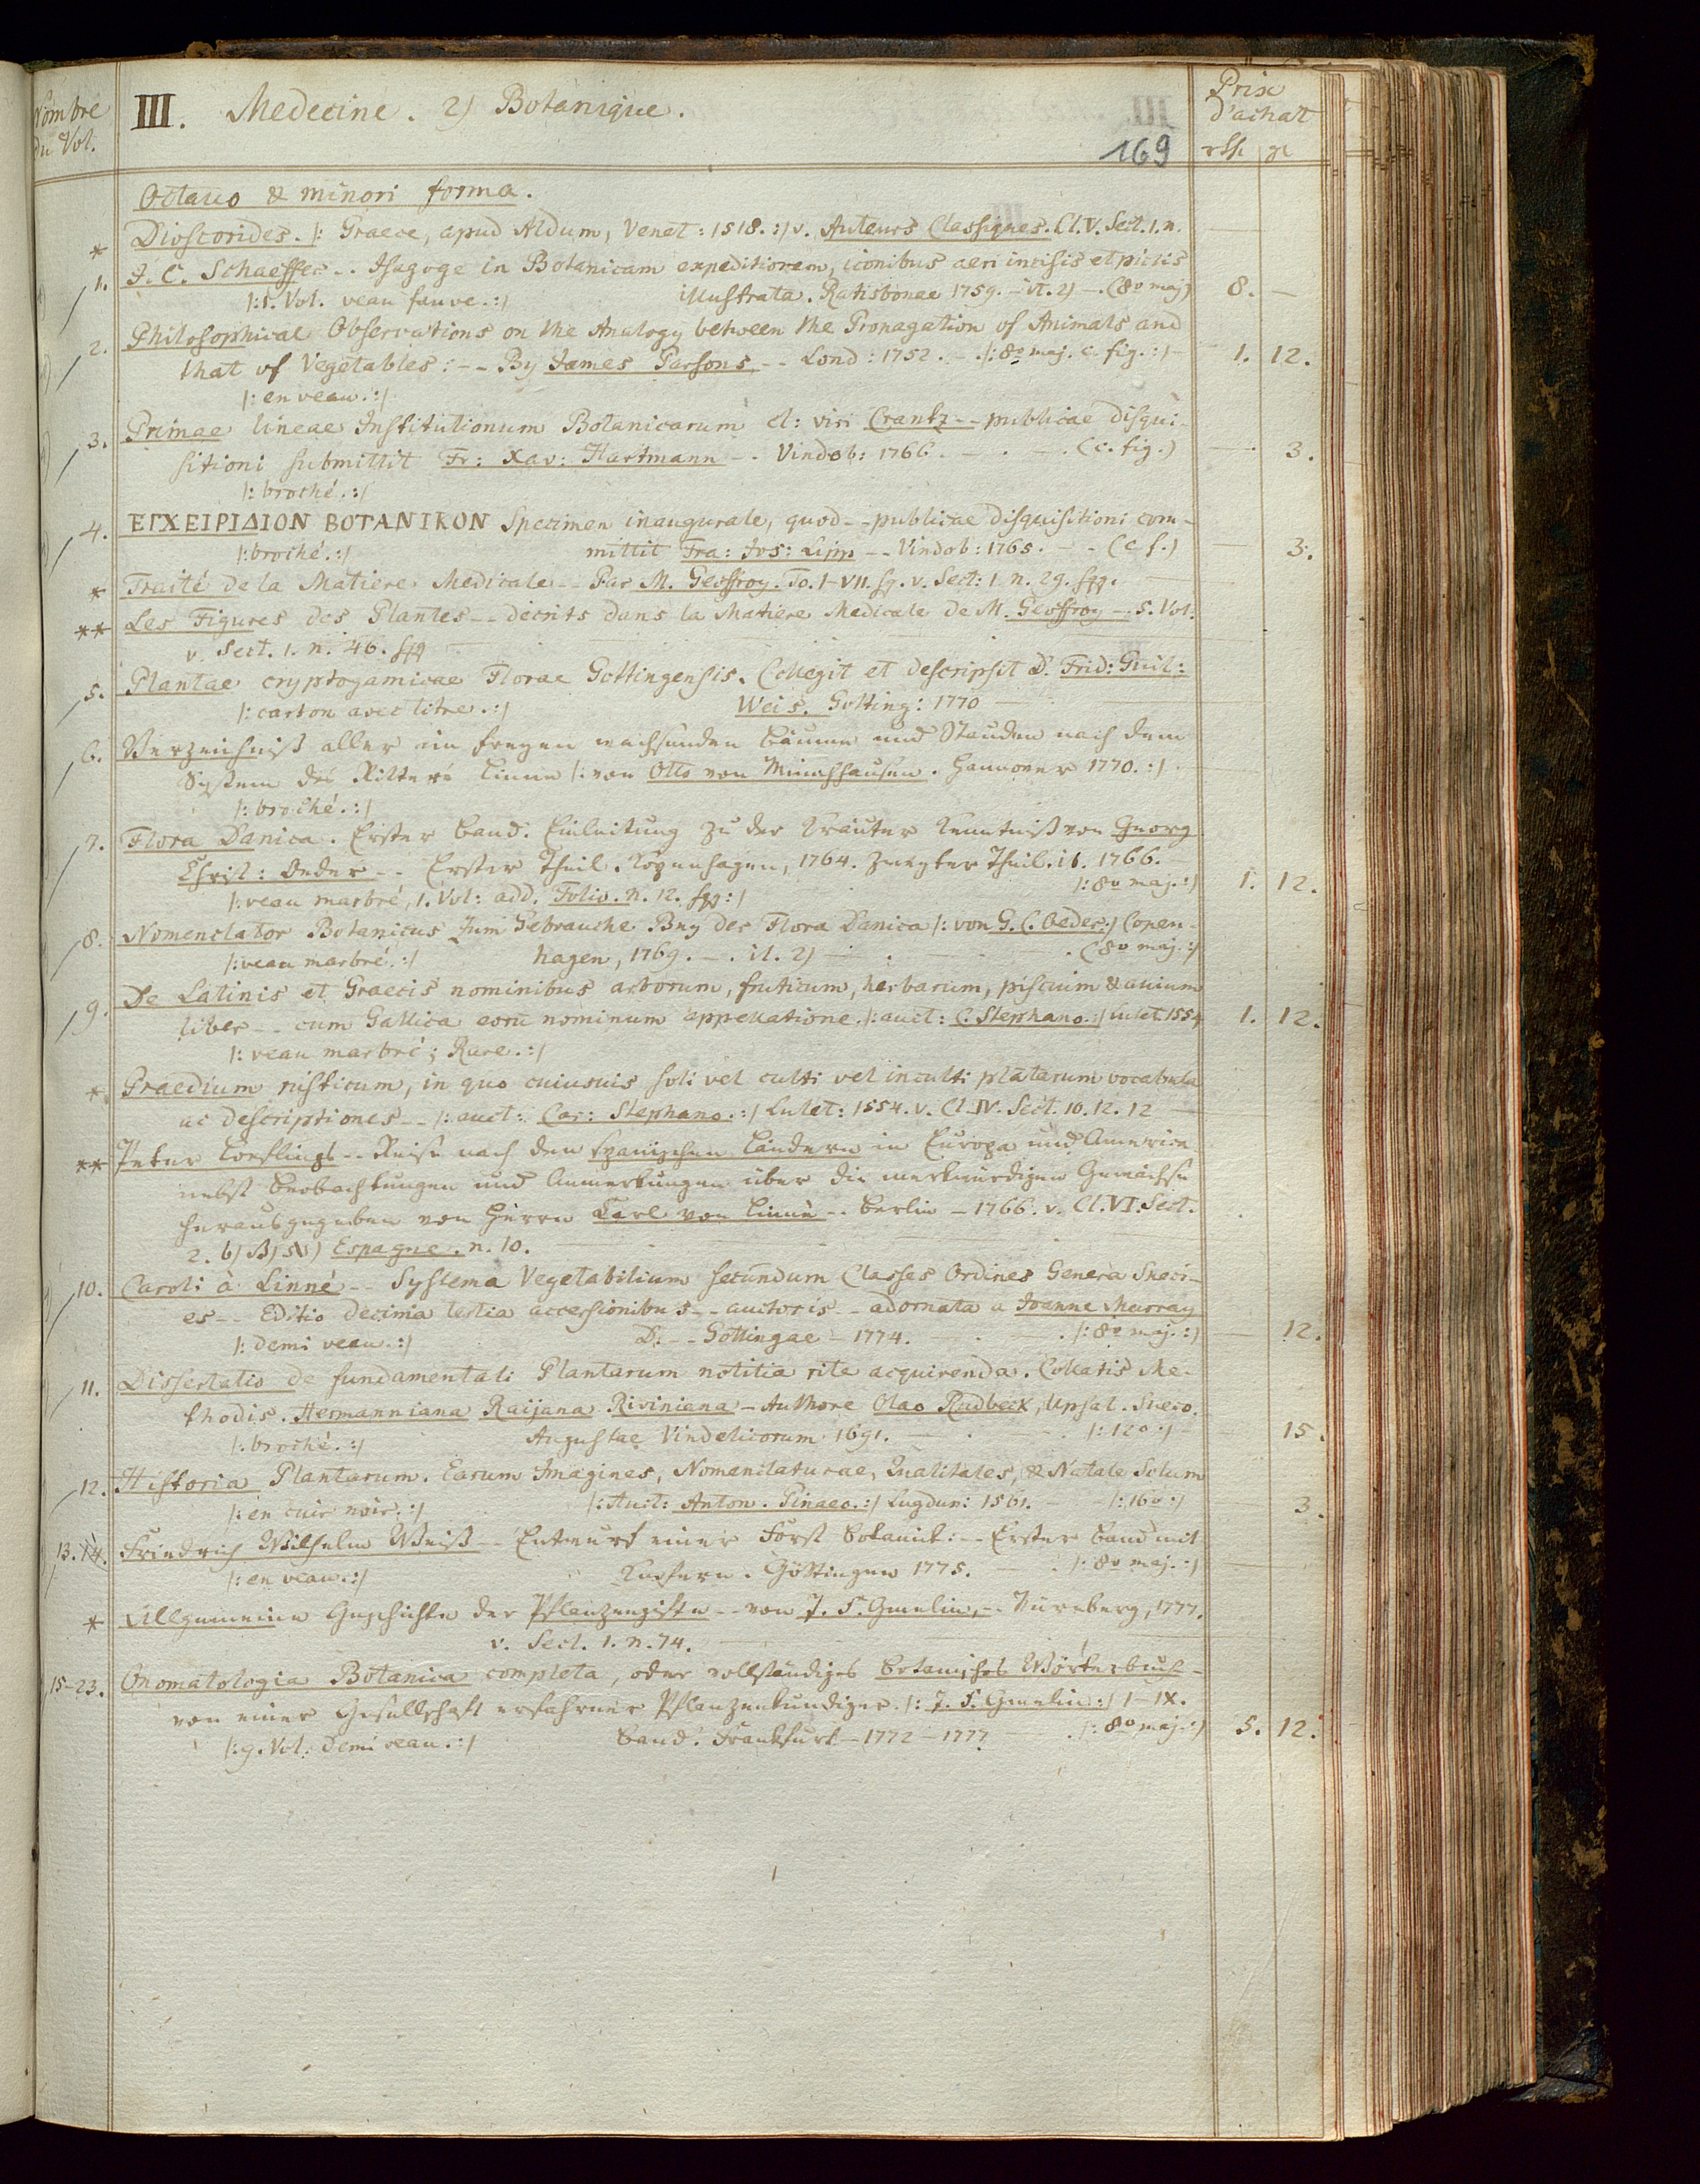 Nombre du Vol.
III. Medecine. 2) Botanique.
Prix d'achat
169
rth gl
Octavo & minori forma.
* Dioscorides. |: Graece, apud Aldum, Venet: 1518. :| v. Auteurs Classiques. Cl. V. Sect. 1. n.
1. J. C. Schaeffer -- Isagoge in Botanicam expeditiorem, iconibus aeri incisis et pictis
|: 1. Vol. veau fauve. :| illustrata. Ratisbonae 1759. - it. 2) -. (8º maj) 8. —
2. Philosophical Observations on the Analogy between the Propagation of Animals and
that of Vegetables: -- By James Parsons -- Lond: 1752. -. |: 8º maj. c. fig. :| 1. 12.
|: en veau. :|
3. Primae lineae Institutionum Botanicarum cl: viri Crantz -- publicae disqui-
sitioni submittit Fr: Xav: Hartmann -. Vindob: 1766. - . - . (c. fig.) — 3.
|: broché. :|
4. ΕΓΧΕΙΡΙΔΙΟΝ ΒΟΤΑΝΙΚΟΝ Specimen inaugurale, quod -- publicae disquisitioni com-
|: broché. :| mittit Fra: Jos: Lipp -- Vindob: 1765. - . (c f.) — 3.
* Traité de la Matiere Medicale -- Par M. Geoffroy. To. I-VII. sq. v. Sect: 1. n. 29. sqq.
** Les Figures des Plantes -- decrits dans la Matiere Medicale de M. Geoffroy -. 5. Vol.
v. Sect. 1. n. 46. sqq
5. Plantae cryptogamicae Florae Gottingensis. Collegit et descripsit D. Frid: Guil:
|: carton avec titre. :| Weis. Gotting: 1770
6. Verzeichniß aller im freyen wachsenden Bäume und Stauden nach dem
System des Ritters Linne |: von Otto von Münchhausen. Hannover 1770. :|
|: broché. :|
7. Flora Danica. Erster Band. Einleitung zu der Kräuter Kenntniß von Georg
Christ: Oeder -- Erster Theil. Kopenhagen, 1764. Zweyter Theil. ib. 1766.
|: veau marbré, 1. Vol: add. Folio. n. 12. sqq :| |: 8º maj. :| 1. 12.
8. Nomenclator Botanicus zum Gebrauche Bey der Flora Danica |: von G. C. Oeder :| Copen-
|: veau marbré. :| hagen, 1769. -. it. 2) — . — . (8º maj. :|
9. De Latinis et Graecis nominibus arborum, fruticum, herbarum, piscium & avium
liber -- cum Gallica eorū nominum appellatione. |: auct: C. Stephano. :| Lutet. 1554 1. 12.
|: veau marbré; Rare. :|
* Praedium rusticum, in quo cuiusuis soli vel culti vel inculti plātarum vocabula
ac descriptiones -- |: auct: Car: Stephano. :| Lutet: 1554. v. Cl. IV. Sect. 10. 12. 12
** Peter Loeflings -- Reise nach den spanischen Ländern in Europa und America
nebst Beobachtungen und Anmerkungen über die merkwürdigen Gewächse
herausgegeben von Herrn Karl von Linné -- Berlin - 1766. v. Cl. VI. Sect.
2. b) Espagne. n. 10.
10. Caroli à Linné -- Systema Vegetabilium secundum Classes Ordines Genera Speci-
es -- Editio decima tertia accessionibus -- auctoris -- adornata a Joanne Murray
|: demi veau. :| D. -- Gottingae - 1774. . |: 8º maj. :| — 12.
11. Dissertatio de fundamentali Plantarum notitia rite acquirenda. Collatis Me-
thodis. Hermanniana Raijana Riviniana - Authore Olao Rudbeck, Upsal. Sueco.
|: broché. :| Augustae Vindelicorum 1691. |: 12º :| 15.
12. Historia Plantarum. Earum Imagines, Nomenclaturae, Qualitates, & Natale Solum
|: en cuir noir. :| |: Auct: Anton. Pinaeo. :| Lugdun: 1561. - |: 16º :| 3.
13. 14. Friedrich Wilhelm Weiß -- Entwurf einer Forst Botanik: -- Erster Band mit
|: en veau. :| Kupfern. Göttingen 1775. - . |: 8º maj. :|
* Allgemeine Geschichte der Pflanzengifte -- von J. F. Gmelin, -. Nürnberg, 1777.
v. Sect. 1. n. 74.
15-23. Onomatologia Botanica completa, oder vollständiges botanisches Wörterbuch -
von einer Gesellschaft erfahrner Pflanzenkundiger. |: J. F. Gmelin :| I-IX.
|: 9. Vol. demi veau. :| Band. Frankfurt - 1772 - 1777 . |: 8º maj. :| 5. 12.